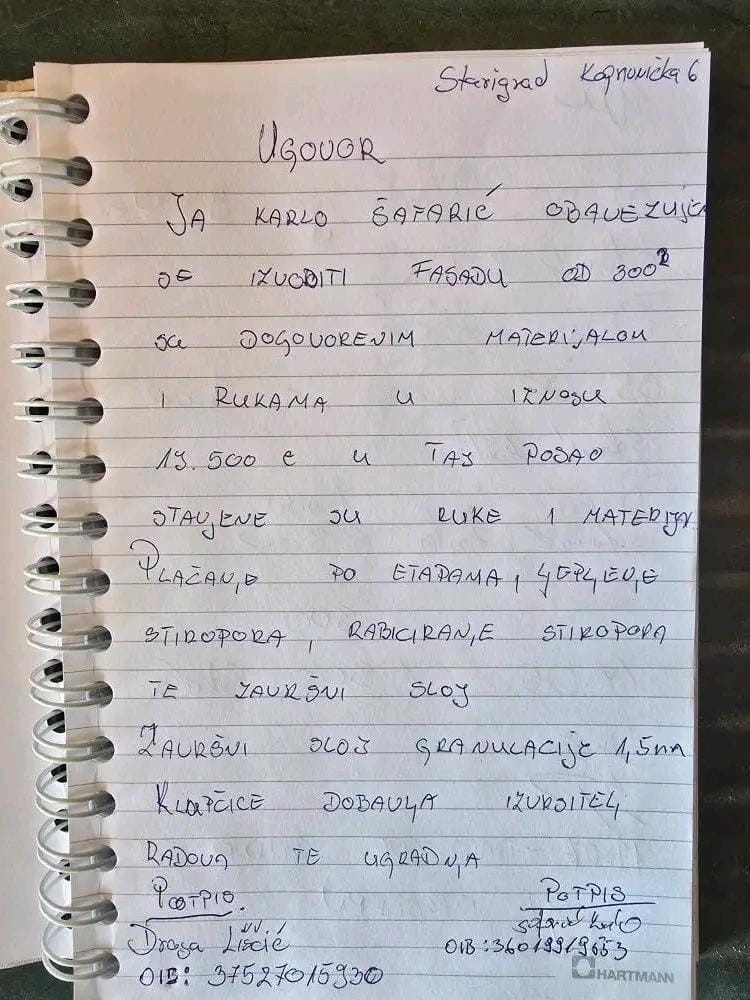 Starigrad Kopnonička 6
UGOVOR
JA KARLO ŠAFARIĆ OBAVEZUJE
SE IZVODITI FASADU OD 300²
SA DOGOVORENIM MATERIJALOM
I RUKAMA U IZNOSU
19.500 e U TAJ POSAO
STAVJENE SU RUKE I MATERIJA
PLAČANJE PO ETAPAMA, LJEPLJENJE
STIROPORA, RABICIRANJE STIROPORA
TE ZAVRŠNI SLOJ
ZAVRŠNI SLOJ GRANULACIJE 1,5mm
KLAPČICE DOBAVLJA IZVODITELJ
RADOVA TE UGRADNJA
POTPIS POTPIS
Draga Liščić
OIB: 36019919653
OIB: 37527015930
HARTMANN